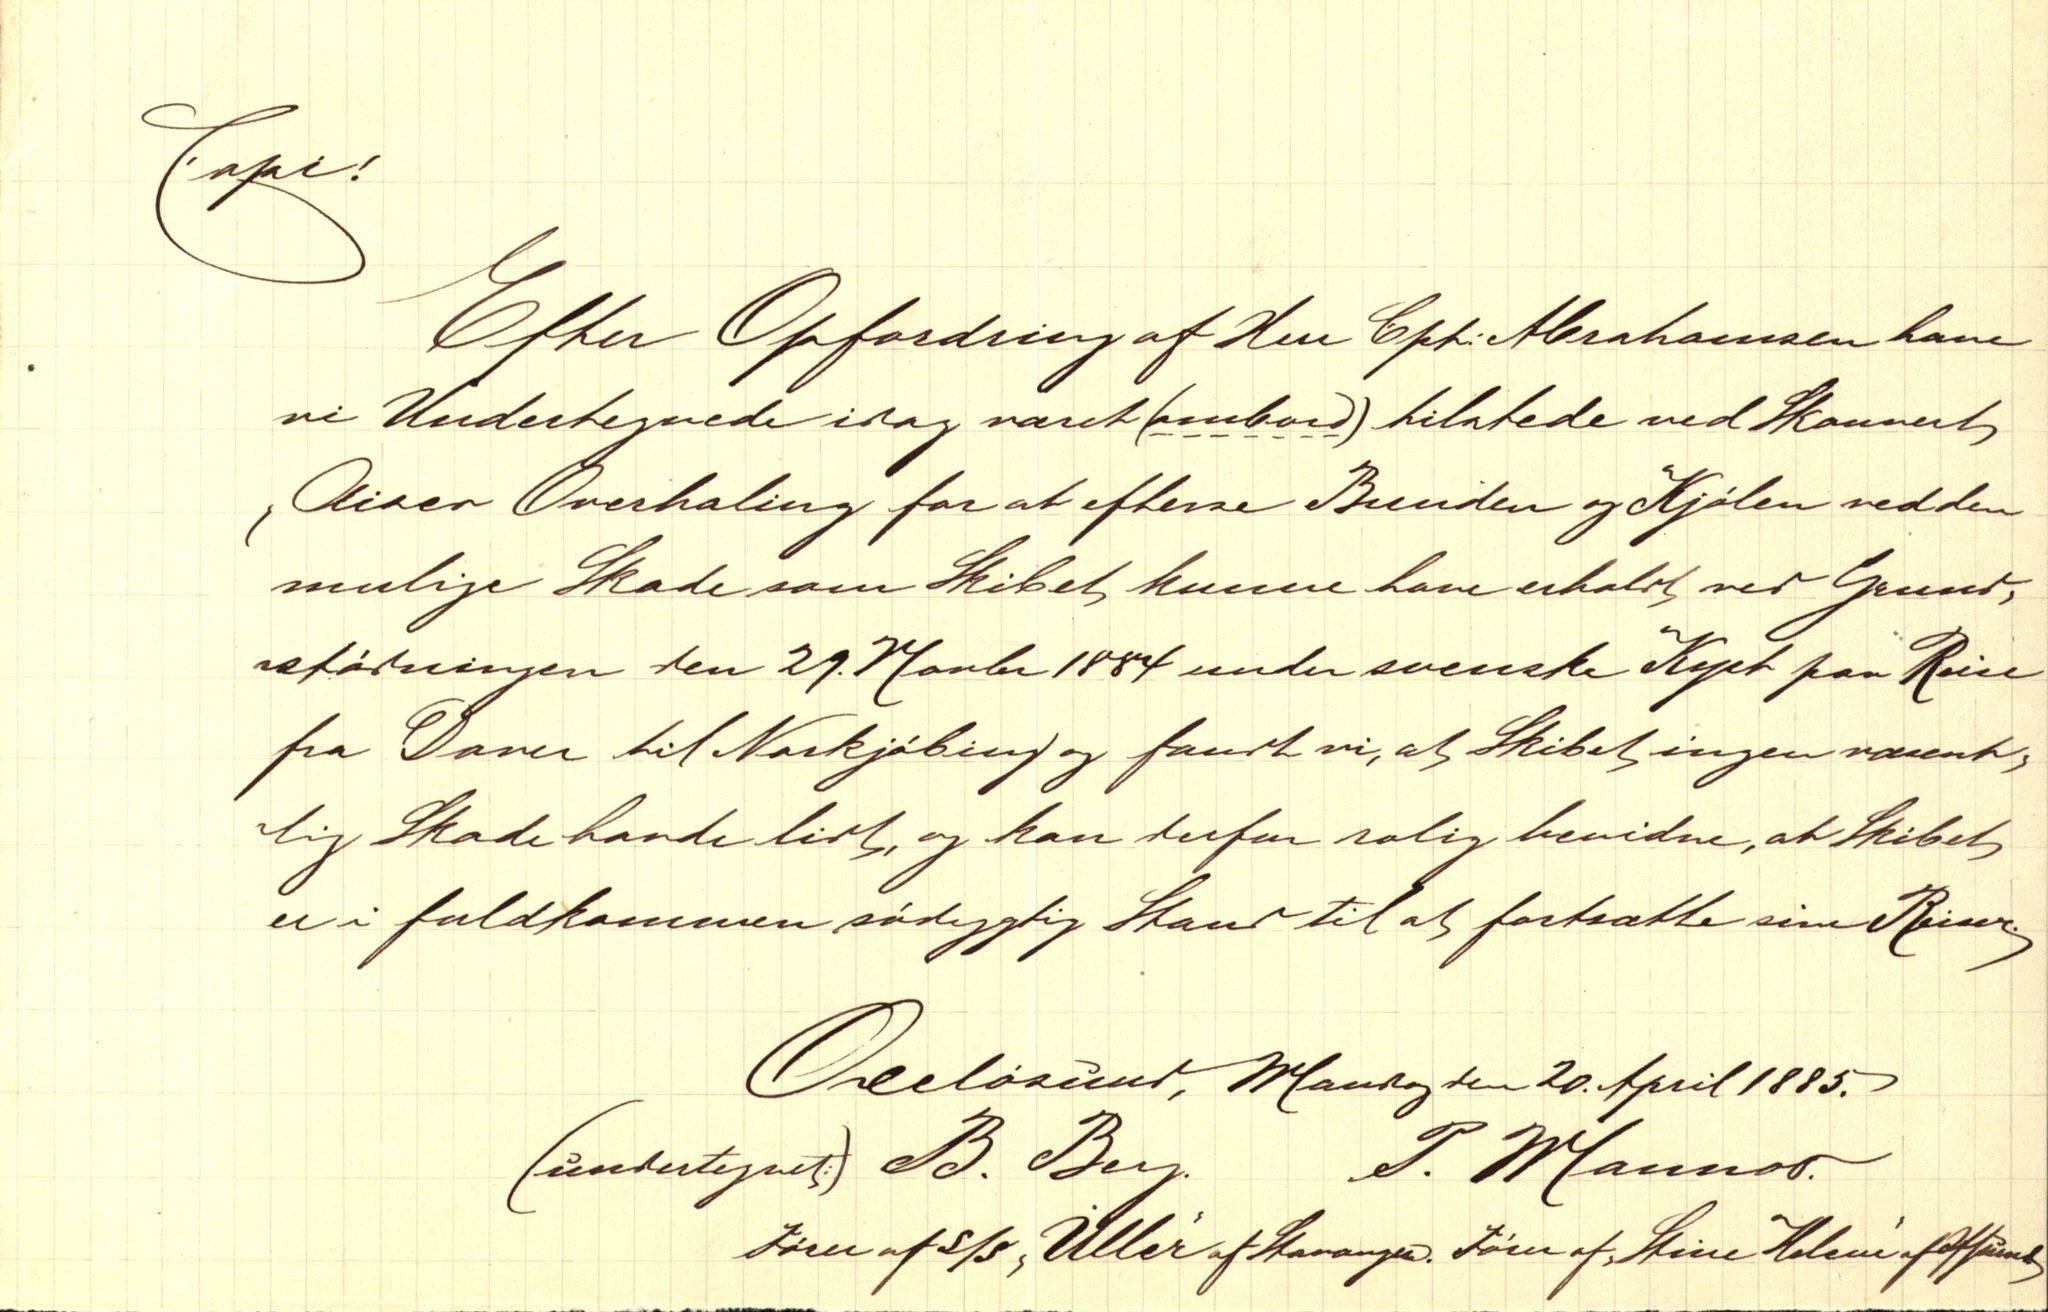 Copi!
Efter Opfordring af Herr Cpt: Abrahamsen have
vi Undertegnede idag været (ombord) tilstede ved Skonnert
„Aises Overhaling for at efterse Bunden og Kjölen ved den
mulige Skade som Skibet kunne have erholdt ved Grund-
stödningen den 29. Novbr 1884 under svenske Kyst paa Reise
fra Dover til Norkjöbing og fandt vi, at Skibet ingen væsent-
lig Skade havde lidt, og kan derfor rolig bevidne, at Skibet
er i fuldkommen södygtig Stand til at fortsætte sine Reiser.
Oxelösund, Mandag den 20. April 1885.
(undertegnet:) B. Berg. P. Mannos.
Förer af S/S „Uller" af Stavanger. Förer af „Stine Helene" af